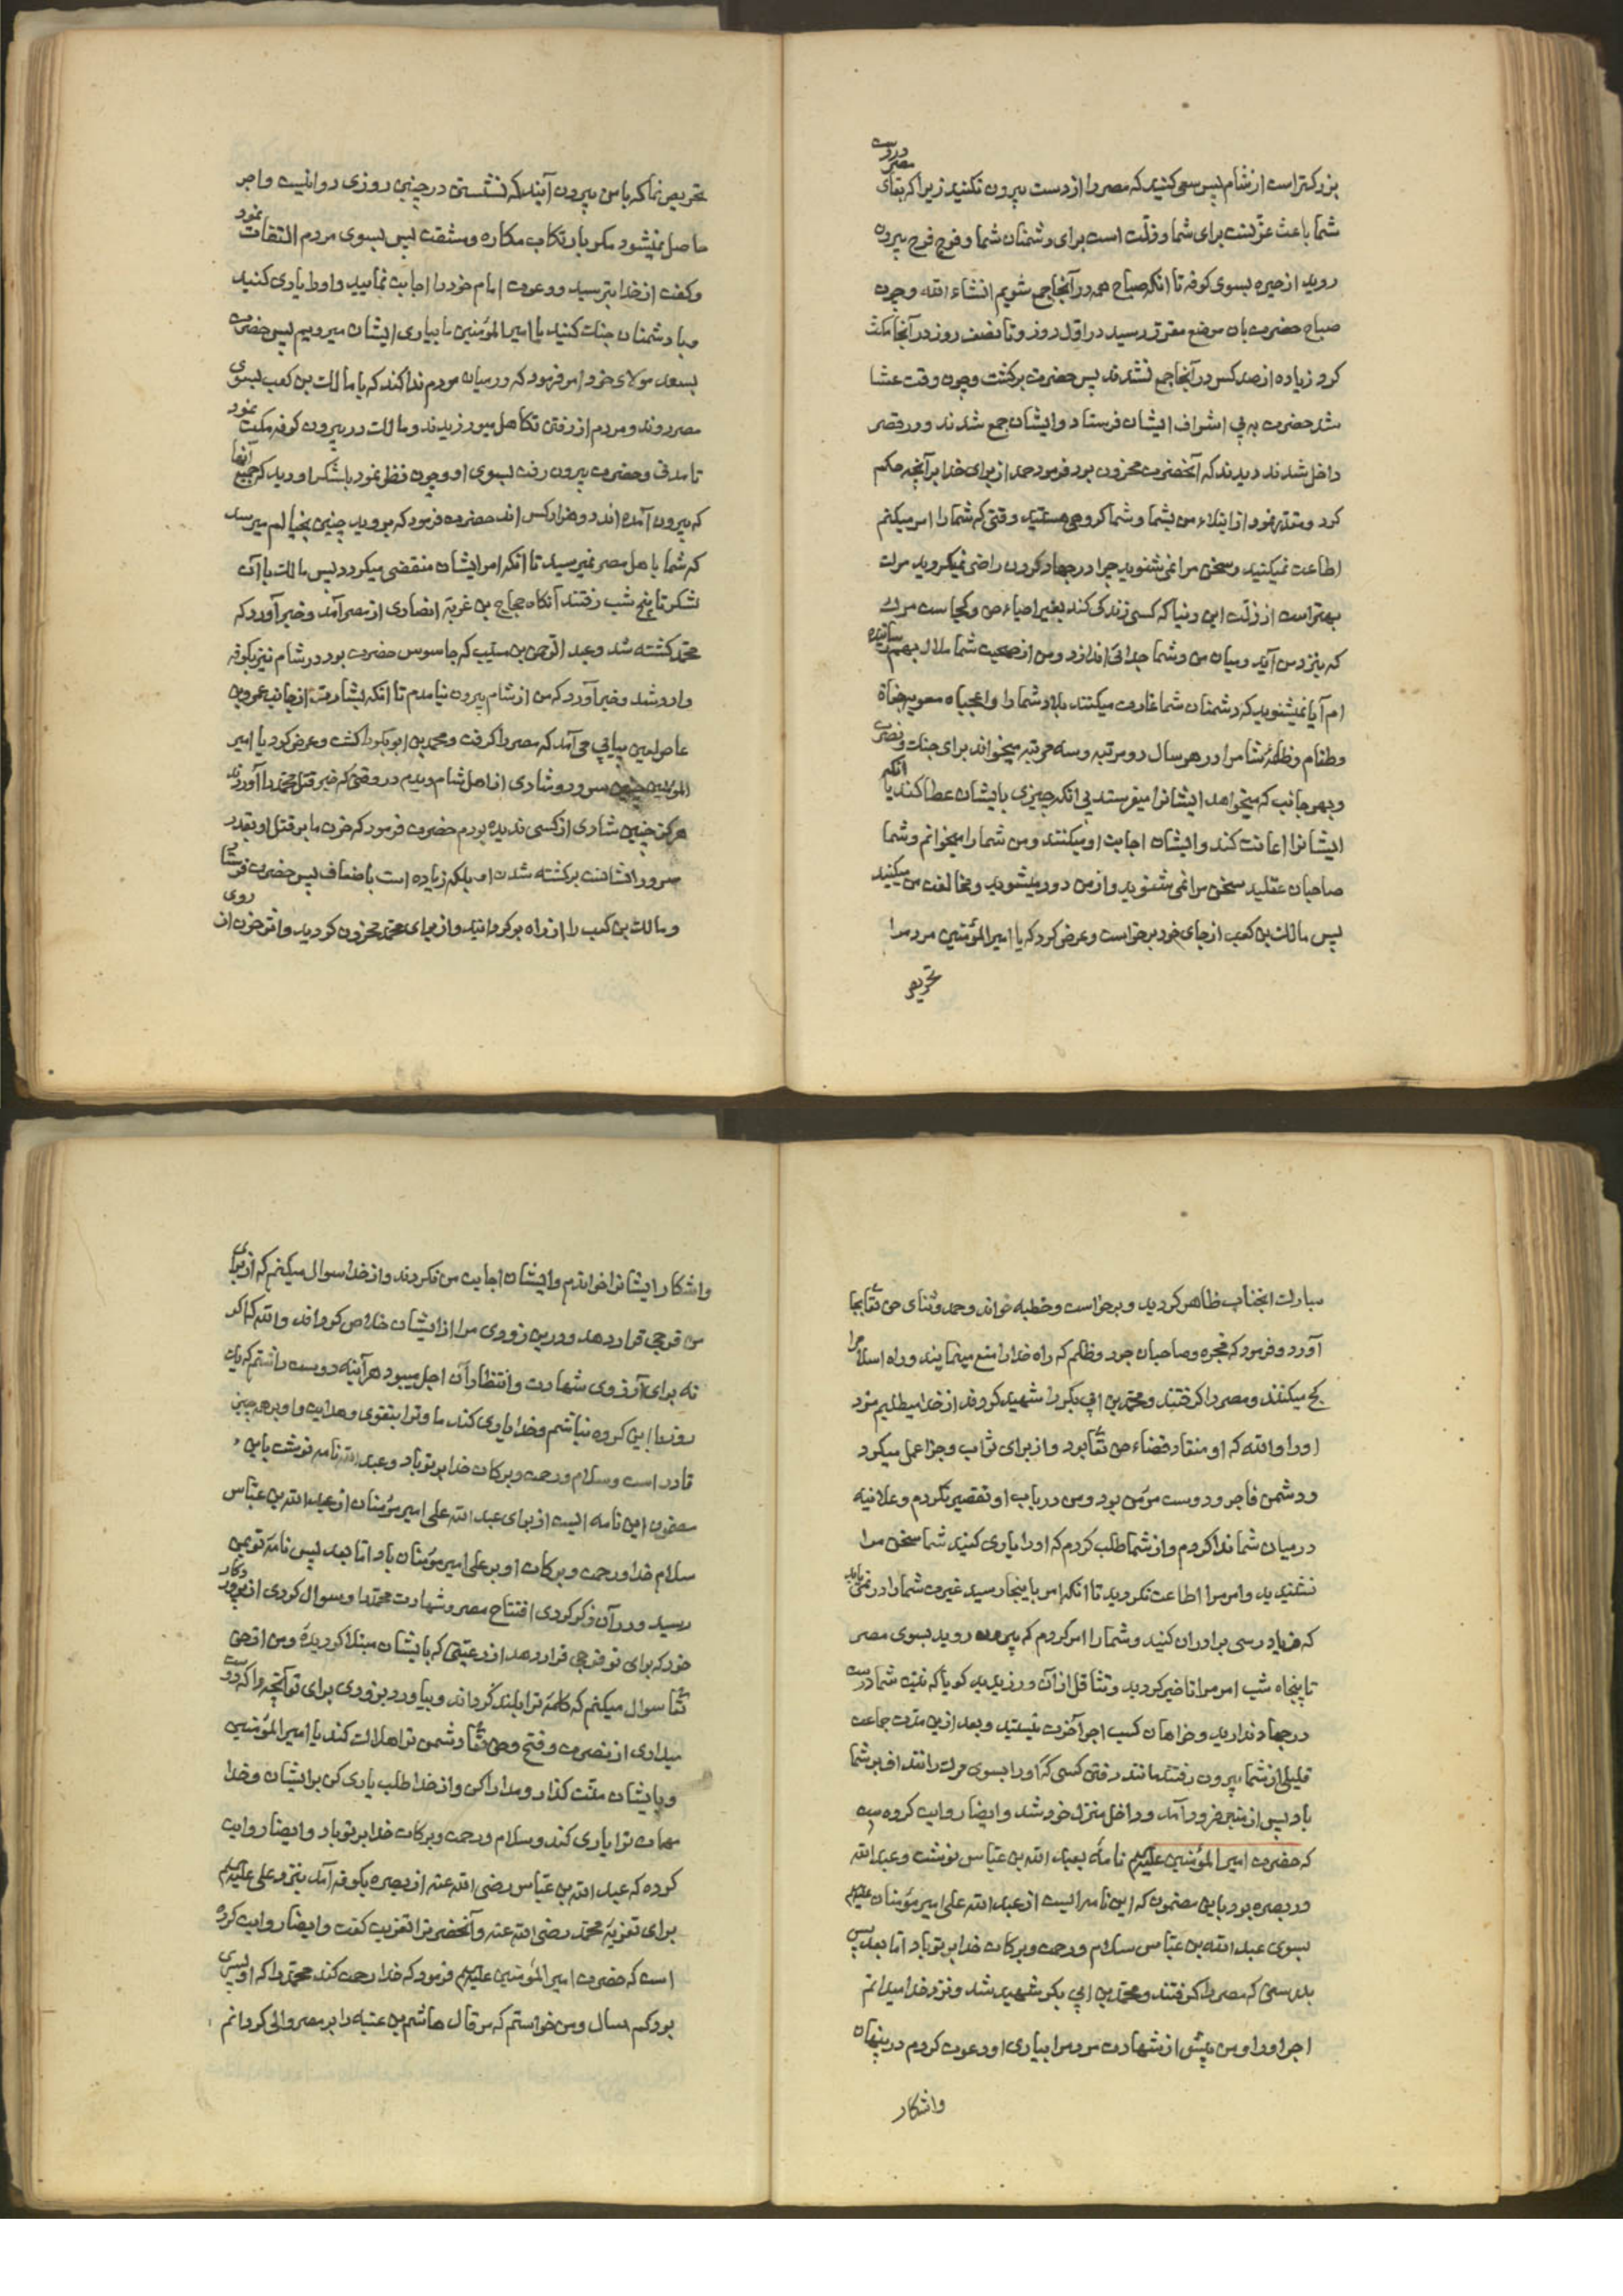 بزرکتر است از شام پس سعی کنید که مصر را از دست بیرون نکنید زیرا که بقای مصر در دست
شما باعث عزتست برای شما و ذلت است برای دشمنان شما و فوج فوج بیرون
روید از حیره بسوی کوفه تا انکه صباح همه در آنجا جمع شویم انشاء الله و چون
صباح حضرت بان موضع مقرر رسید در اول روز و تا نصف روز در آنجا مکث
کرد زیاده از صد کس در آنجا جمع نشدند پس حضرت برکشت و چون وقت عشا
شد حضرت به پی اشراف ایشان فرستاد و ایشان جمع شدند و در قصر
داخل شدند دیدند که آنحضرت محزون بود فرمود حمد از برای خدا بر آنچه حکم
کرد و مقدر نمود از ابتلاء من بشما و شما کروهی هستید وقتی که شما را امر میکنم
اطاعت نمیکنید و سخن مرا نمی شنوید چرا در جهاد کردن راضی نمیکردید مرک
بهتر است از ذلت این دنیا که کسی زندکی کند بغیر احیاء حق و کجاست مرک
که بنزد من آید و میان من و شما جدائی اندازد و من از صحبت شما ملال بهم رسانیده
ام آیا نمیشنوید که دشمنان شما غارت میکنند بلاد شما را واعجباه معویه جفاة
و طغام و ظلمهٔ شام را در هر سال دو مرتبه و سه مرتبه میخواند برای جنک و نصرت
و بهر جانب که میخواهد ایشانرا میفرستد بی انکه چیزی بایشان عطا کند یا انکه
ایشانرا اعانت کند و ایشان اجابت او میکنند و من شما را میخوانم و شما
صاحبان عقلید سخن مرا نمی شنوید و از من دور میشوید و مخالفت من میکنید
پس مالک بن کعب از جای خود برخواست و عرض کرد که یا امیر المؤمنین مردم را
تحریص
تحریص نما که با من بیرون آیند که نشستن در چنین روزی روا نیست و اجر
حاصل نمیشود مکر بارتکاب مکاره و مشقت پس بسوی مردم التفات نمود
و کفت از خدا بترسید و دعوت امام خود را اجابت نمایید و او را یاری کنید
و با دشمنان جنک کنید یا امیر المؤمنین ما بیاری ایشان میرویم پس حضرت
بسعد مولای خود امر فرمود که در میان مردم ندا کند که با مالک بن کعب بسوی
مصر روند و مردم از رفتن تکاهل میورزیدند و مالک در بیرون کوفه مکث نمود
تا مدتی و حضرت بیرون رفت بسوی او و چون نظر نمود بلشکر او دید که جمیع آنها
که بیرون آمده اند دو هزار کس اند حضرت فرمود که بروید چنین بخیالم میرسد
که شما باهل مصر نمیرسید تا انکه امر ایشان منقضی میکردد پس مالک با آن
لشکر تا پنج شب رفتند آنکاه حجاج بن غزیه انصاری از مصر آمد و خبر آورد که
محمد کشته شد و عبد الرحمن بن مسیب که جاسوس حضرت بود در شام نیز بکوفه
وارد شد و خبر آورد که من از شام بیرون نیامدم تا انکه بشارت از جانب عمرو بن
عاص لعین پیاپی می آمد که مصر را کرفت و محمد بن ابو بکر را کشت و عرض کرد یا امیر
المؤمنین چنین سرور و شادی از اهل شام دیدم در وقتی که خبر قتل محمد را آوردند
هرکز چنین شادی از کسی ندیده بودم حضرت فرمود که حزن ما بر قتل او بقدر
سرور انشانست بر کشته شدن او بلکه زیاده است باضعاف پس حضرت فرستاد
و مالک بن کعب را از راه برکردانید و از برای محمد محزون کردید و اثر حزن از روی
مبارک انجناب ظاهر کردید و برخواست و خطبه خواند و حمد و ثنای حق تعا بجا
آورد و فرمود که فجره و صاحبان جور و ظلم که راه خدا را منع مینمایند و راه اسلام را
کج میکنند و مصر را کرفتند و محمد بن ابی بکر را شهید کردند از خدا میطلبم مزد
او را والله که او منقاد قضاء حق تعا بود و از برای ثواب و جزا عمل میکرد
و دشمن فاجر و دوست مؤمن بود و من در باب او تقصیر نکردم و علانیه
در میان شما ندا کردم و از شما طلب کردم که او را یاری کنید شما سخن مرا
نشنیدید و امر مرا اطاعت نکردید تا انکه امر باینجا رسید غیرت شما را در نمی یابد
که فریاد رسی برادران کنید و شما را امر کردم که بیرون روید بسوی مصر
تا پنجاه شب امر مرا تاخیر کردید و تثاقل از آن ورزیدید کویا که نیت شما درست
در جهاد ندارید و خواهان کسب اجر آخرت نیستید و بعد از این مدت جماعت
قلیلی از شما بیرون رفتند مانند رفتن کسی که او را بسوی مرک رانند اف بر شما
باد پس از منبر فرود آمد و داخل منزل خود شد و ایضا روایت کرده است
که حضرت امیر المؤمنین علیه السلام نامه بعبد الله بن عباس نوشت و عبد الله
در بصره بود باین مضمون که این نامه ایست از عبد الله علی امیر مؤمنان علیه السلام
بسوی عبد الله بن عباس سلام و رحمت و برکات خدا بر تو باد اما بعد پس
بدرستی که مصر را کرفتند و محمد بن ابی بکر شهید شد و نزد خدا میدانم
اجر او را و من پیش از شهادت مردم را بیاری او دعوت کردم در پنهان
و اشکار
و اشکار ایشانرا خواندم و ایشان اجابت من نکردند و از خدا سوال میکنم که از برای
من فرجی قرار دهد و درین زودی مرا از ایشان خلاص کرداند والله که اکر
نه برای آرزوی شهادت و انتظار آن اجل میبود هر آینه دوست داشتم که یک
روز با این کروه نباشم و خدا یاری کند ما و ترا بتقوی و هدایت و او بر همه چیز
قادر است و سلام و رحمت و برکات خدا بر تو باد و عبد الله نامه نوشت باین
مضمون این نامه ایست از برای عبد الله علی امیر مؤمنان از عبد الله بن عباس
سلام خدا و رحمت و برکات او بر علی امیر مؤمنان باد اما بعد پس نامهٔ تو بمن
رسید و در آن ذکر کردی افتتاح مصر و شهادت محمد را و سوال کردی از پروردکار
خود که برای تو فرجی قرار دهد از رعیتی که بایشان مبتلا کردیدهٔ و من از حق
تعا سوال میکنم که کلمهٔ ترا بلند کرداند و بیاورد بزودی برای تو آنچه را که دوست
میداری از نصرت و فتح و حق تعا دشمن ترا هلاک کند یا امیر المؤمنین
و بایشان منت کذار و مدارا کن و از خدا طلب یاری کن بر ایشان و خدا
مهمات ترا یاری کند و سلام و رحمت و برکات خدا بر تو باد و ایضا روایت
کرده که عبد الله بن عباس رضی الله عنه از بصره بکوفه آمد بنزد علی علیه السلام
برای تعزیهٔ محمد رضی الله عنه و آنحضرت را تعزیت کفت و ایضا روایت کرده
است که حضرت امیر المؤمنین علیه السلام فرمود که خدا رحمت کند محمد را که او پسری
بود کم سال و من خواستم که مرقال هاشم بن عتبه را بر مصر والی کردانم